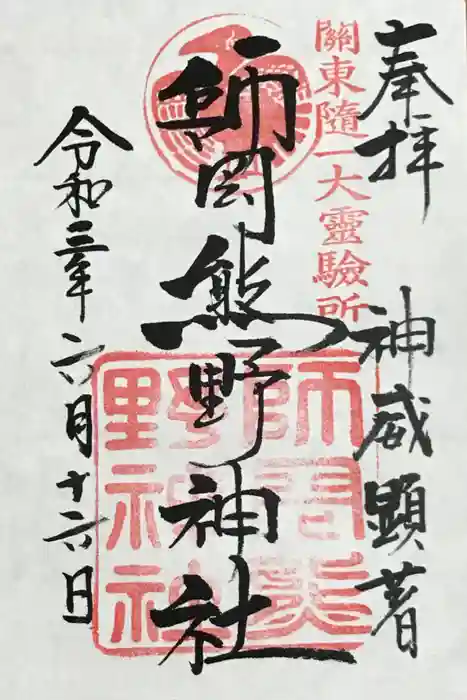 奉拝
神威顕著
關東隨一大靈驗所
師岡熊野神社
師岡熊野神社
令和三年六月十六日